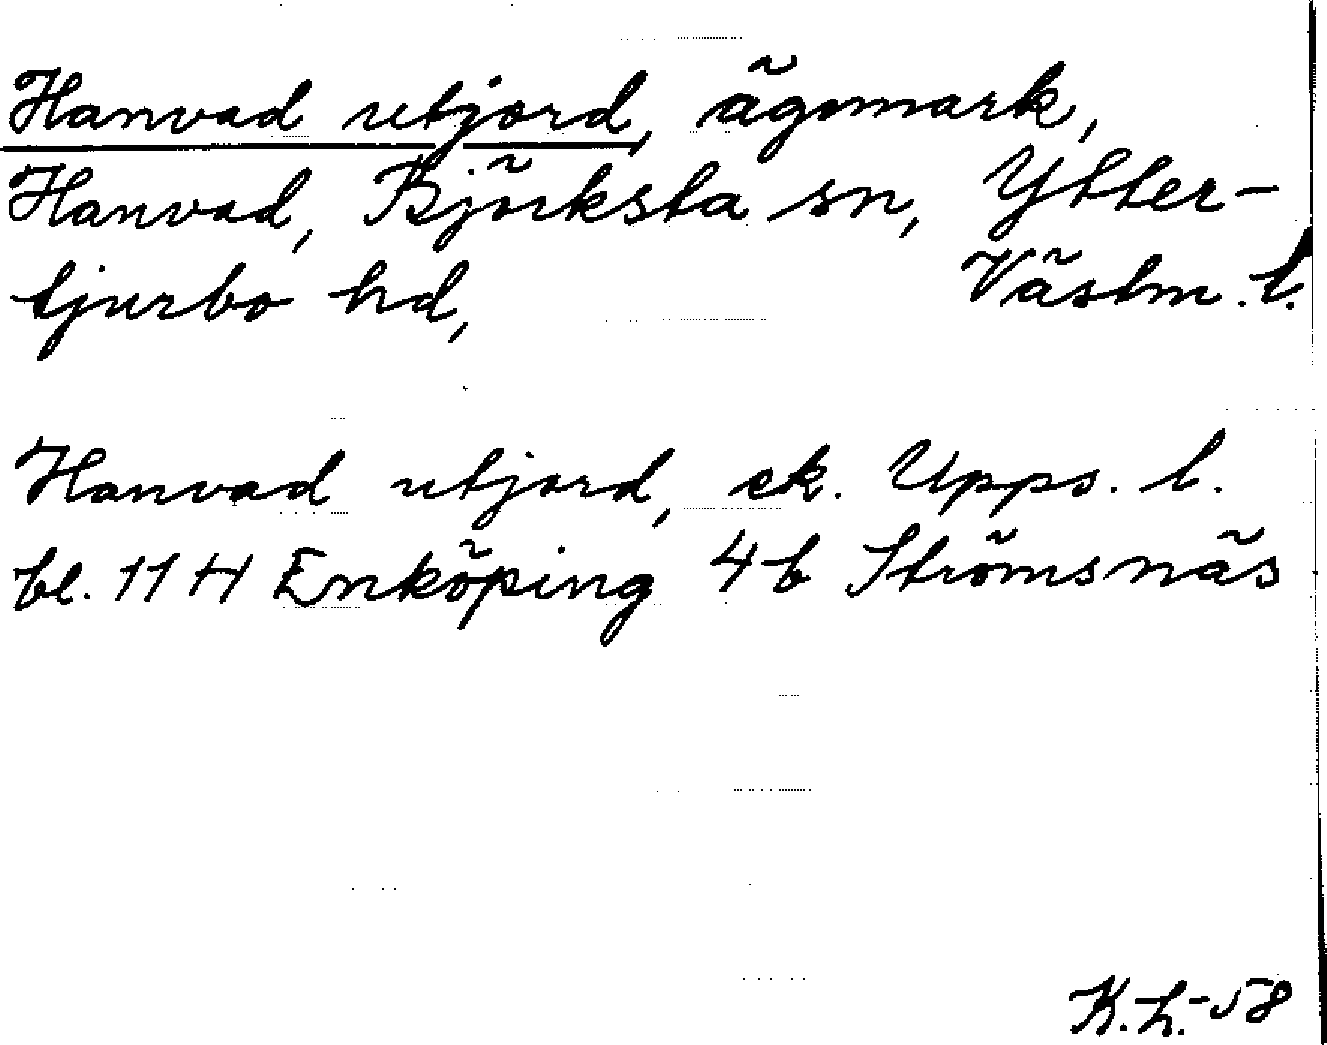 Hanvad utjord, ägomark,
Hanvad, Björksta sn, Ytter-
tjurbo hd, Västm. l.
Hanvad utjord, ek. Upps. l.
bl. 11 H Enköping 4b Strömsnäs
K.L.-58